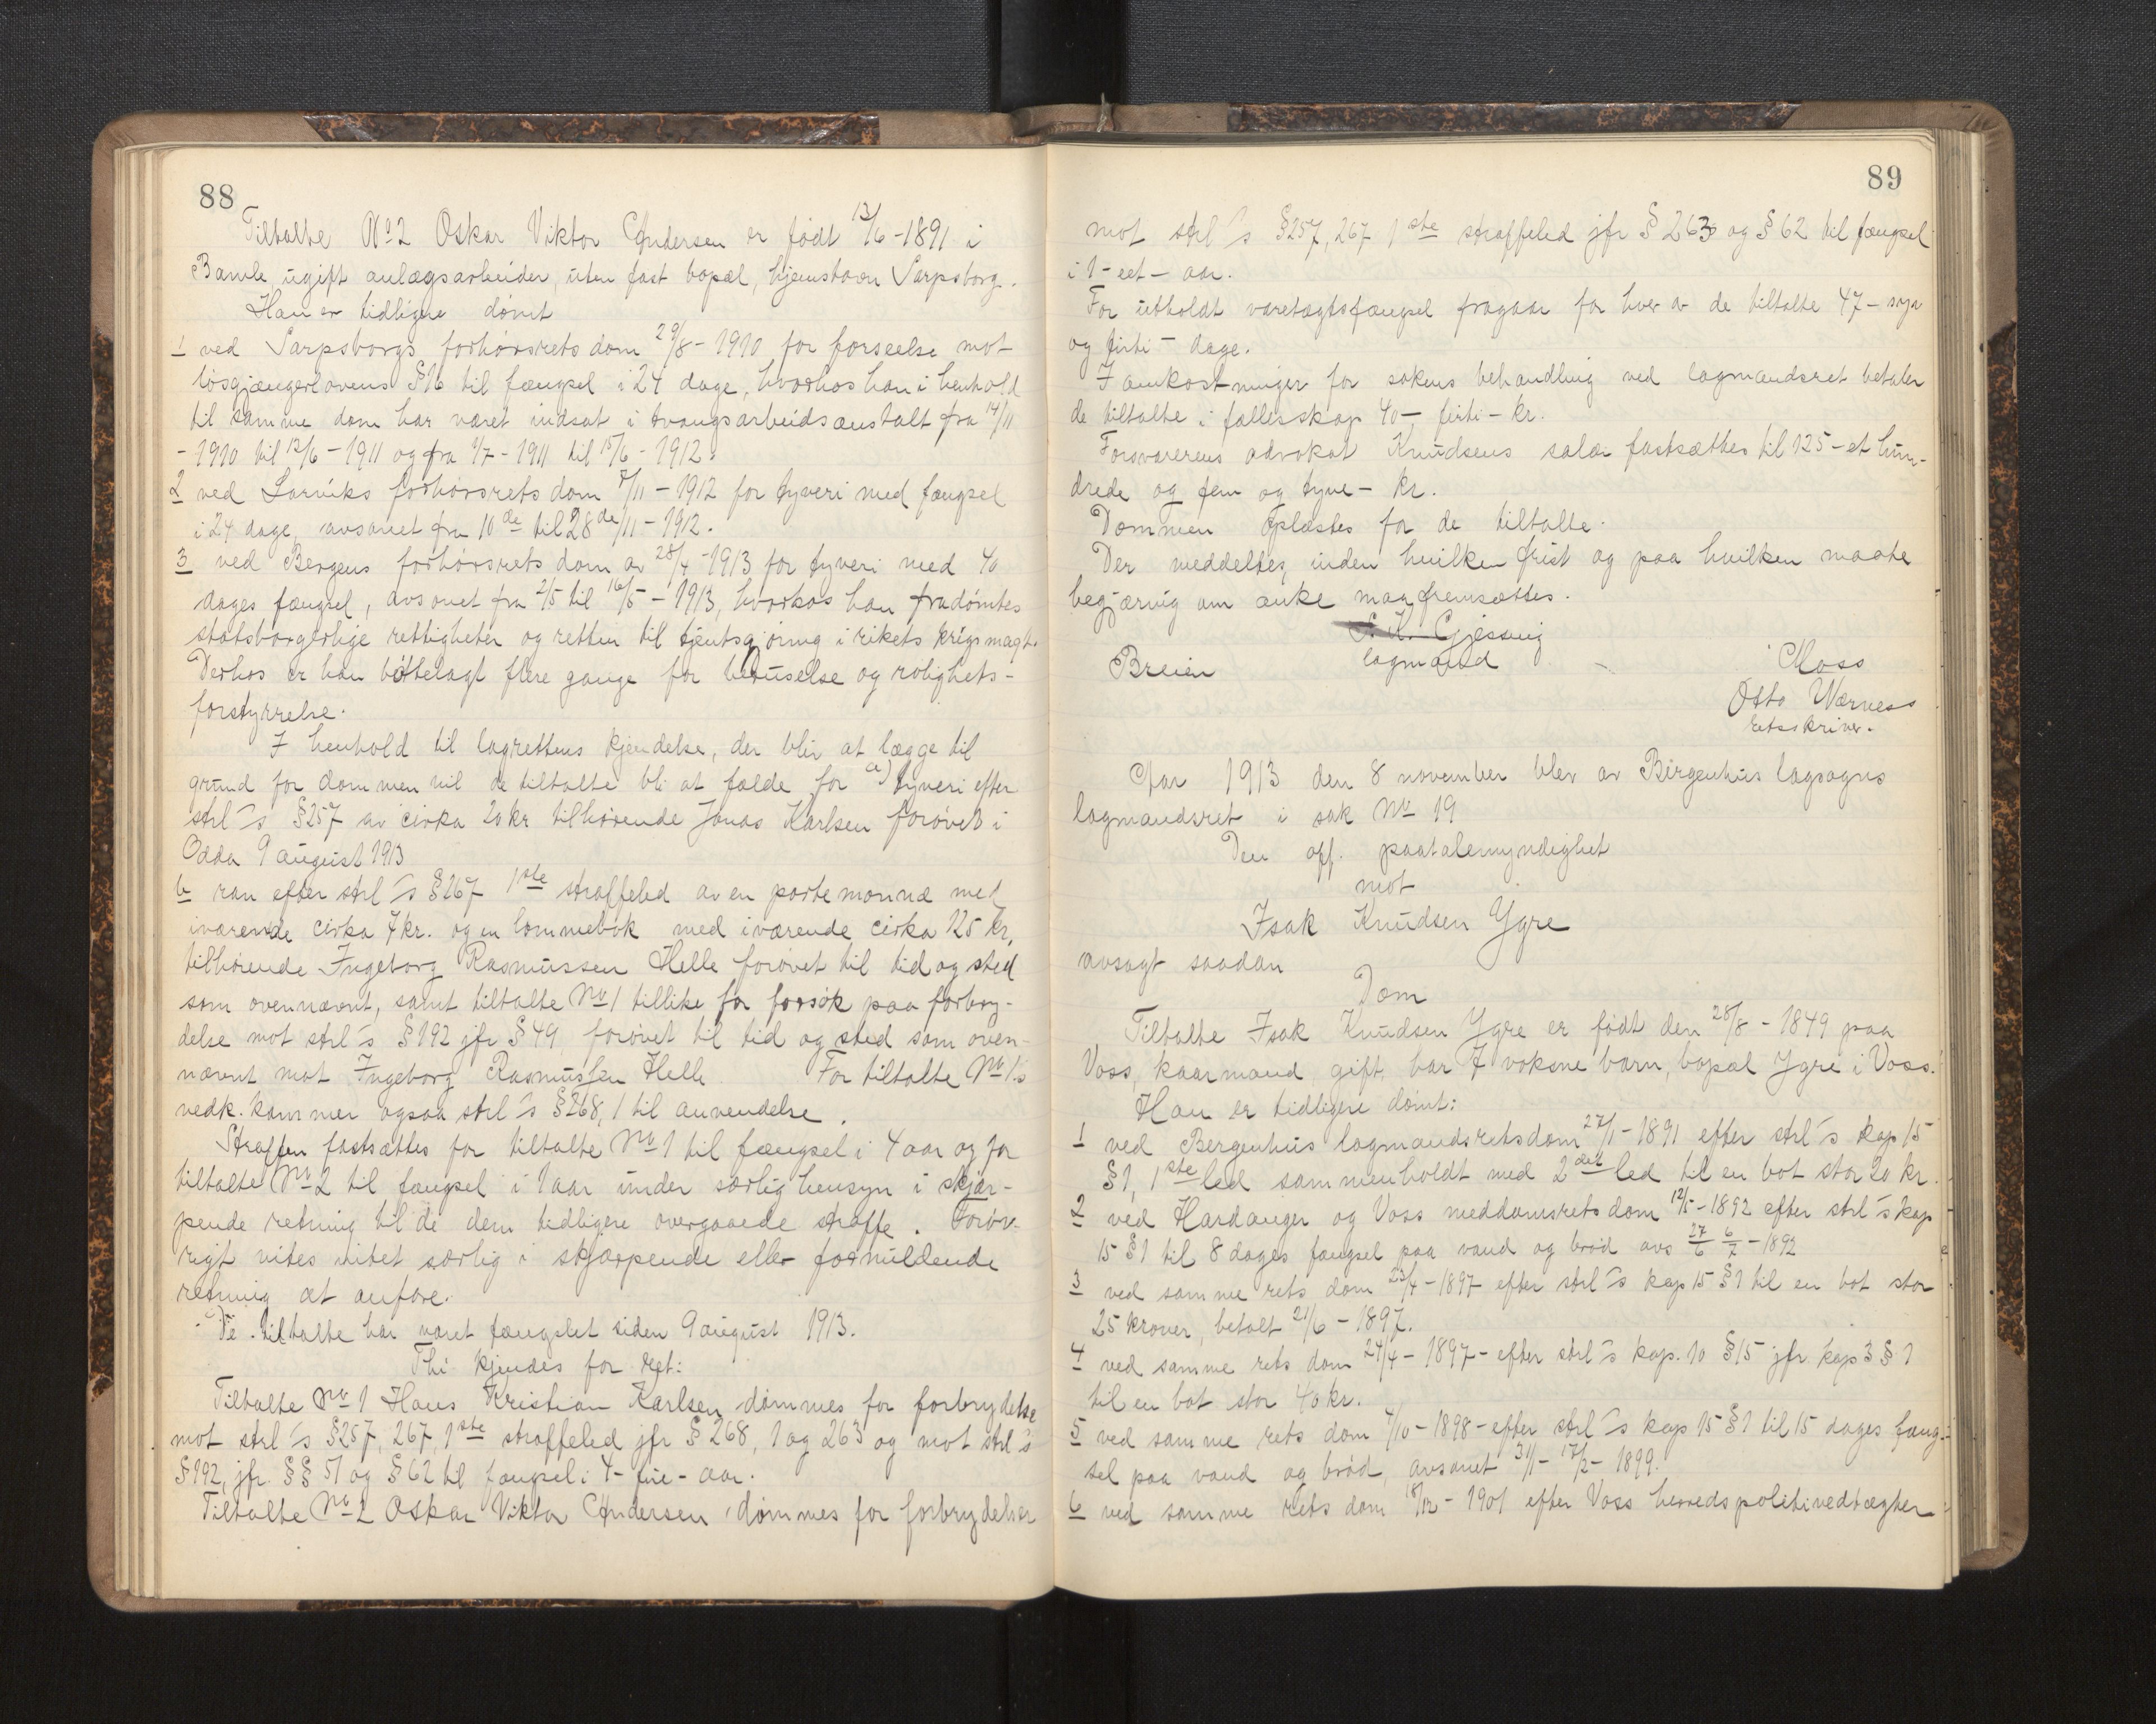 88
Tiltalte No 2 Oskar Viktor Andersen er født 13/6-1891 i
Bamle, ugift anlægsarbeider, uten fast bopæl, hjemstavn Sarpsborg.
Han er tidligere dømt
1 ved Sarpsborgs forhørsrets dom 29/8-1910 for forseelse mot
løsgjængerlovens §16 til fængsel i 24 dage, hvorhos han i henhold
til samme dom har været indsat i tvangsarbeidsanstalt fra 14/11
-1910 til 12/6-1911 og fra 1/7-1911 til 15/6-1912.
2 ved Larviks forhørsrets dom 7/11-1912 for tyveri med fængsel
i 24 dage, avsonet fra 10de til 28de/11-1912.
3 ved Bergens forhørsrets dom av 28/4-1913 for tyveri med 40
dages fængsel, avsonet fra 2/5 til 16/5-1913, hvorhos han fradømtes
statsborgerlige rettigheter og retten til tjenstgjøring i rikets krigsmagt.
Derhos er han bøtelagt flere gange for beruselse og rolighets-
forstyrrelse.
I henhold til lagrettens kjendelse, der blir at lægge til
grund for dommen vil de tiltalte bli at fælde for a) tyveri efter
strl's §257 av cirka 20 kr tilhørende Jonas Karlsen forøvet i
Odda 9 august 1913
b ran efter strl's §267 1ste straffeled av en portemonnæ med
iværende cirka 7 kr. og en lommebok med iværende cirka 125 kr,
tilhørende Ingeborg Rasmussen Helle forøvet til tid og sted
som ovennævnt, samt tiltalte No 1 tillike for forsøk paa forbry-
delse mot strl's §192 jfr §49 forøvet til tid og sted som oven-
nævnt mot Ingeborg Rasmussen Helle. For tiltalte No 1's
vedk. kommer ogsaa strl's §268,1 til anvendelse.
Straffen fastsættes for tiltalte No 1 til fængsel i 4 aar og for
tiltalte No 2 til fængsel i 1 aar under særlig hensyn i skjær-
pende retning til de dem tidligere overgaaede straffe. Forøv-
rigt vites intet særlig i skjærpende eller formildende
retning at anføre.
De tiltalte har været fængslet siden 9 august 1913.
Thi kjendes for ret:
Tiltalte No 1 Hans Kristian Karlsen dømmes for forbrydelse
mot strl's §257, 267, 1ste straffeled jfr §268, 1 og 263 og mot strl's
§192, jfr. §§ 51 og §62 til fængsel i 4-fire-aar.
Tiltalte No 2 Oskar Viktor Andersen dømmes for forbrydelser
89
mot strl's §257, 267 1ste straffeled jfr §263 og §62 til fængsel
i 1-eet-aar.
For utholdt varetægtsfængsel fragaar for hver av de tiltalte 47-syv
og firti-dage.
I omkostninger for sakens behandling ved lagmandsret betaler
de tiltalte i fællesskap 40-firti-kr.
Forsvarerens advokat Knudsens salær fastsættes til 125-et hun-
drede og fem og tyve-kr.
Dommen oplæstes for de tiltalte.
Der meddeltes, inden hvilken frist og paa hvilken maate
begjæring om anke maa fremsættes.
Gjessing
lagmand
Breien
Moss
Otto Værness
retsskriver.
Aar 1913 den 8 november blev av Bergenhus lagsogns
lagmandsret i sak No 19
Den off. paatalemyndighet
mot
Isak Knudsen Ygre
avsagt saadan
Dom
Tiltalte Isak Knudsen Ygre er født den 28/8-1849 paa
Voss, kaarmand, gift, har 7 voksne barn, bopæl Ygre i Voss.
Han er tidligere dømt:
1 ved Bergenhus lagmandsretsdom 27/1-1891 efter strl's kap 15
§1, 1ste led sammenholdt med 2det led til en bot stor 20 kr.
2 ved Hardanger og Voss meddomsrets dom 12/5-1892 efter strl's kap
15 §1 til 8 dages fængsel paa vand og brød avs 27/6 6/7-1892
3 ved samme rets dom 23/4-1897 efter strl's kap 15 §1 til en bot stor
25 kroner, betalt 21/6-1897.
4 ved samme rets dom 24/4-1897-efter strl's kap. 10 §15 jfr kap 3 §1
til en bot stor 40 kr.
5 ved samme rets dom 4/10-1898-efter strl's kap 15 §1 til 15 dages fæng-
sel paa vand og brød, avsonet 31/1-17/2-1899.
6 ved samme rets dom 18/12-1901 efter Voss herreds politivedtægter